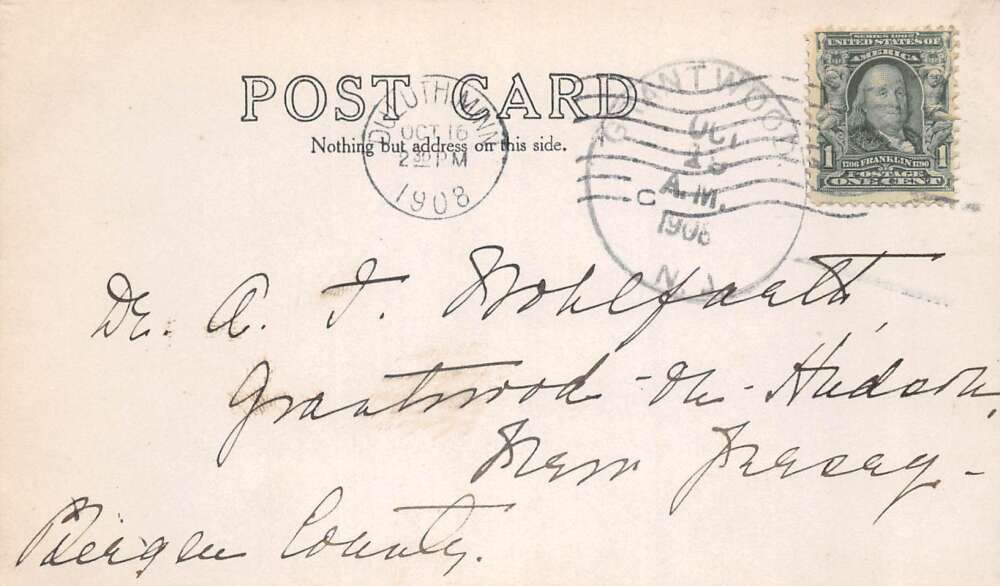 POST CARD
Nothing but address on this side.
DULUTH, MINN.
OCT 16
2 30 PM
1908
GRANTWOOD
OCT
A.M.
C
1908
N. J.
SERIES 1902
UNITED STATES OF
AMERICA
1 1
1706 FRANKLIN 1790
POSTAGE
ONE CENT
Dr. A. T. Wohlfarth,
Grantwood-on-Hudson,
New Jersey-
Bergen County.